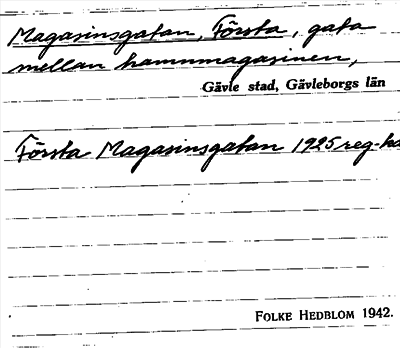 Magasinsgatan, Första, gata
mellan hamnmagasinen,
Gävle stad, Gävleborgs län
Första Magasinsgatan 1925 reg-ka
FOLKE HEDBLOM 1942.